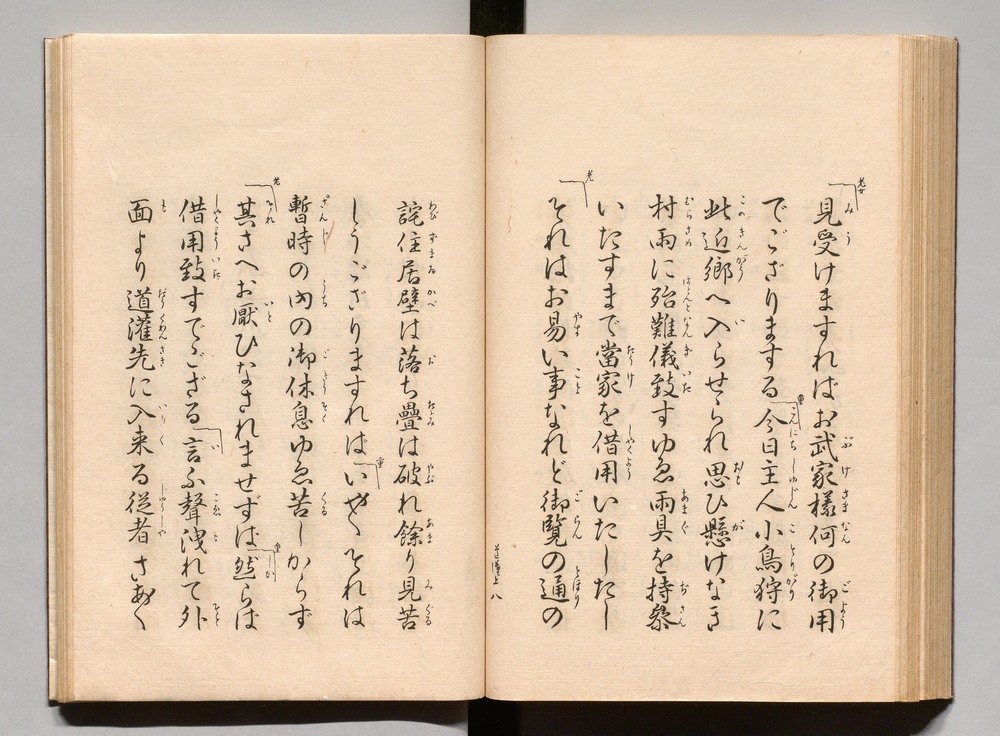 見受けますればお武家樣何の御用
でござりまする今日主人小鳥狩に
此近鄕へ入らせられ思ひ懸けなき
村雨に殆難儀致すゆゑ雨具を持參
いたすまで當家を借用いたしたし
それはお易い事なれど御覽の通の
道灌上 八
詫住居壁は落ち疊は破れ餘り見苦
しうござりますればいや〱それは
暫時の內の御休息ゆゑ苦しからず
其さへお厭ひなされませずば然らば
借用致すでござる言ふ聲洩れて外
面より道灌先に入来る従者さあ〱